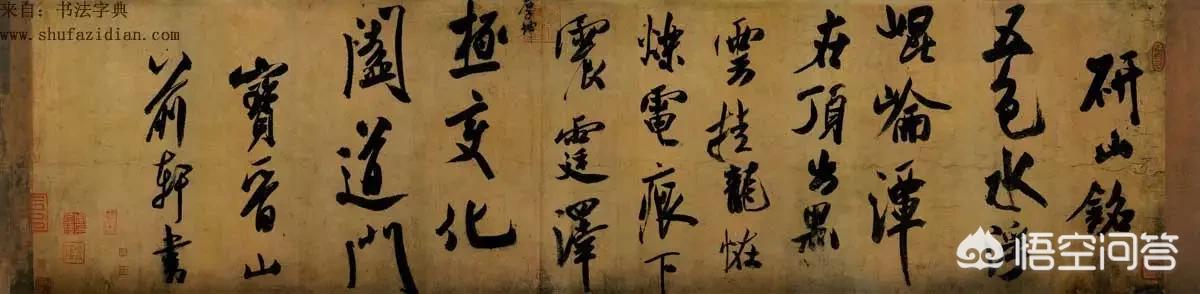 来自：书法字典
www.shufazidian.com
研山銘
五色水浮
崐崘潭
在頂出黑
雲挂龍恠
爍電痕下
震霆澤
極变化
闔道門
寶晉山
前軒書
悟空问答